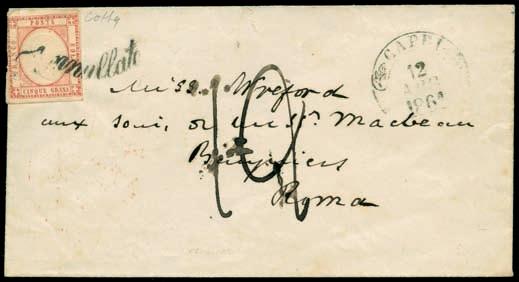 Cotta
POSTE
CINQUE GRANA
Annullato
CAPRI
12
186
Miss Wreford
aux soins de M. Sr. Macbean
Banquiers
19
Roma